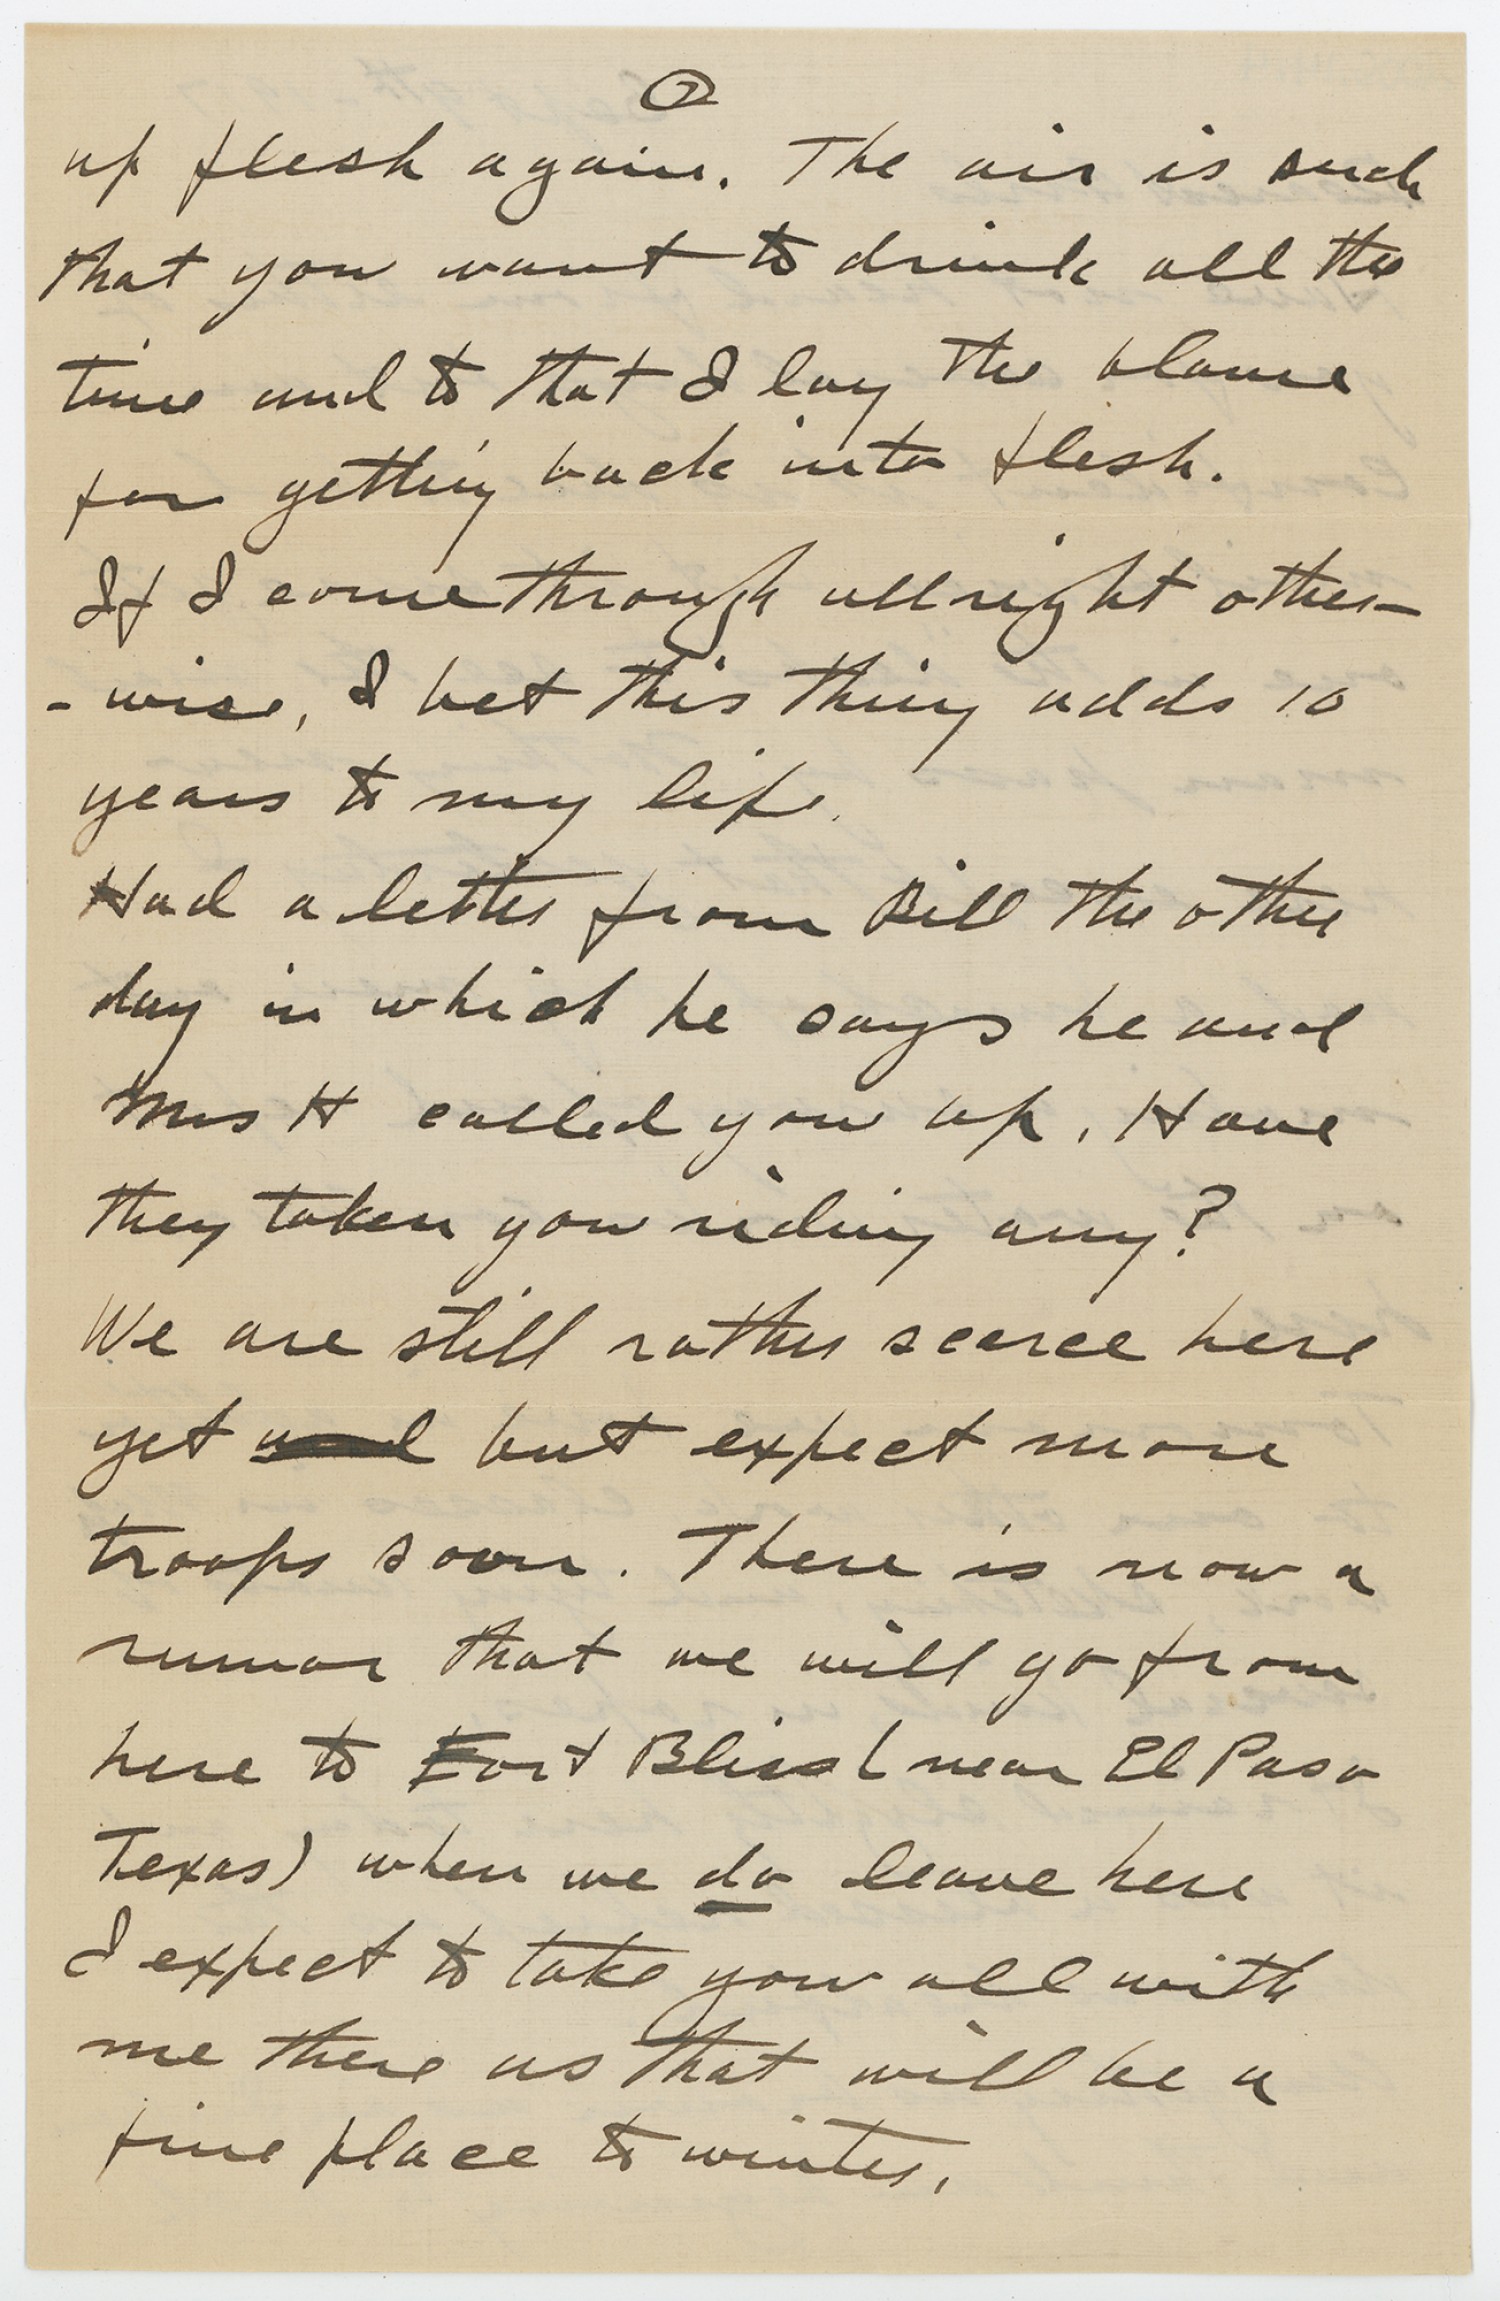 ②
up flesh again. The air is such
that you want to drink all the
time and to that I lay the blame
for getting back into flesh.
If I come through allright other-
-wise, I bet this thing adds 10
years to my life.
Had a letter from Bill the other
day in which he says he and
Mrs H called you up. Have
they taken you riding any?
We are still rather scarce here
yet and but expect more
troops soon. There is now a
rumor that we will go from
here to Fort Bliss (near El Paso
Texas) when we do leave here
I expect to take you all with
me there as that will be a
fine place to winter.